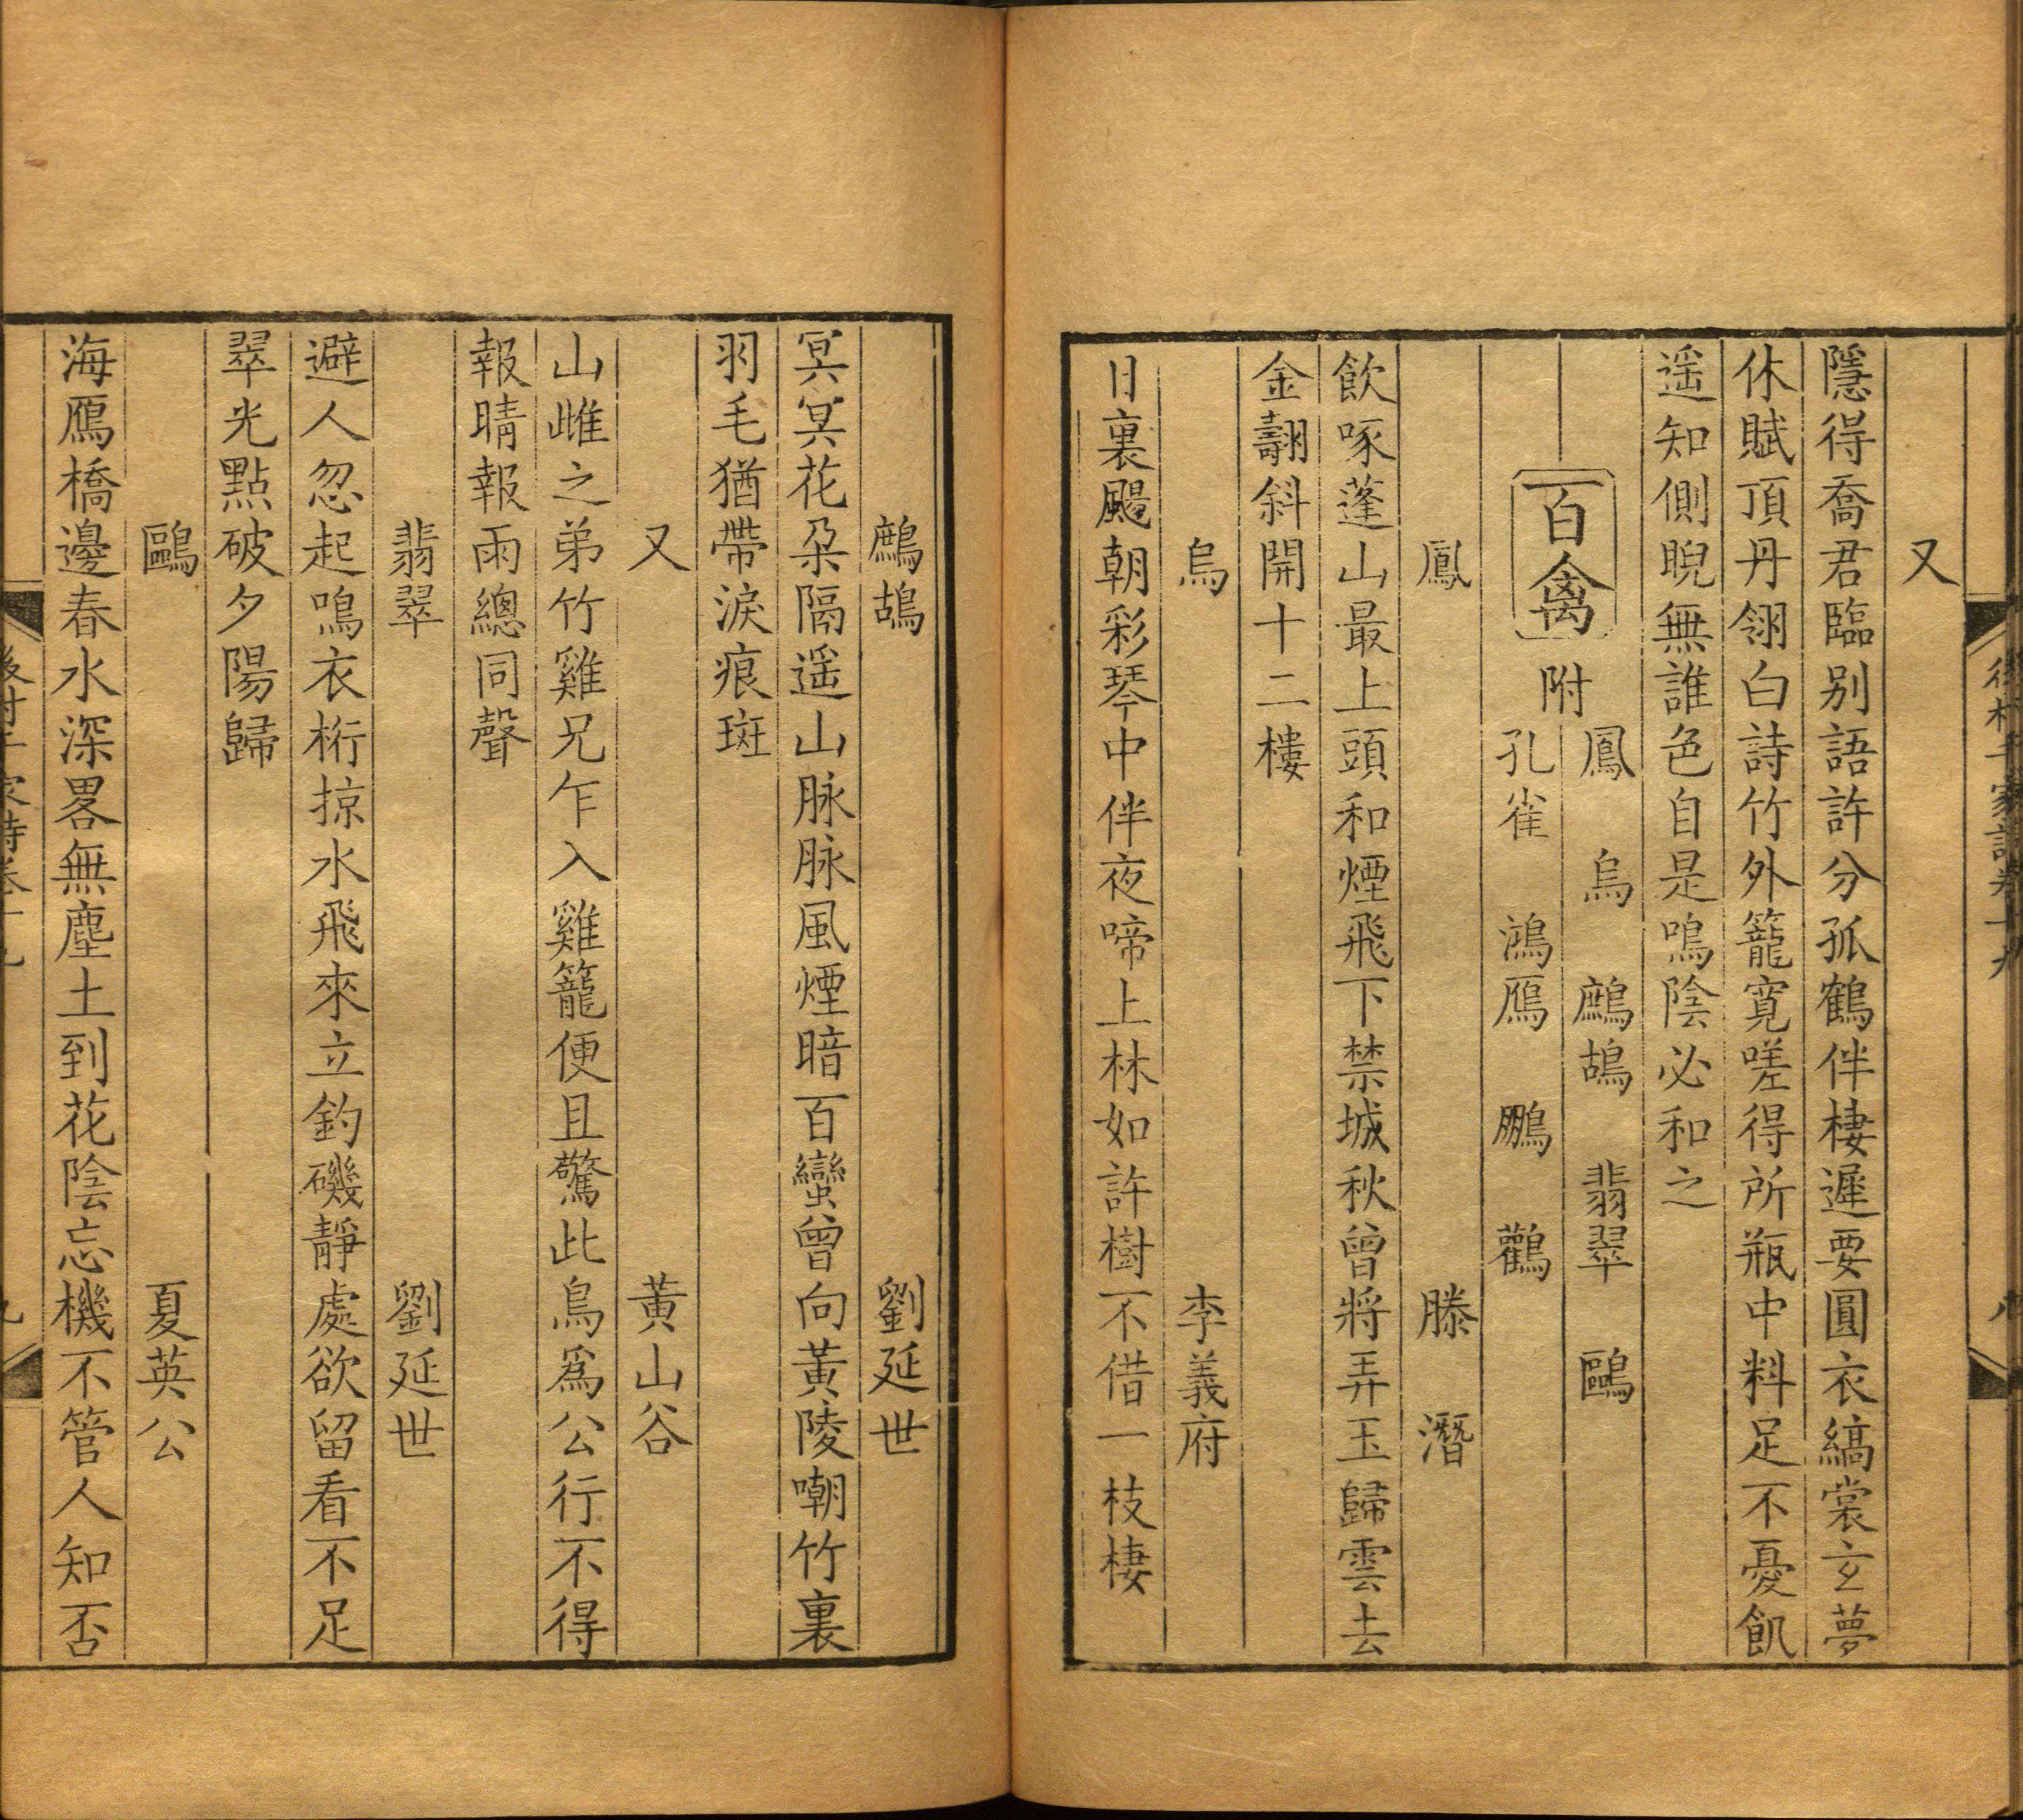 後村千家詩卷十九 八
又
隱得喬君臨别語許分孤鶴伴棲遲要圓衣縞裳玄夢
休賦頂丹翎白詩竹外籠寛嗟得所瓶中料足不憂飢
遥知側睨無誰色自是鳴陰必和之
百禽 附 鳳 烏 鷓鴣 翡翠 鷗
孔雀 鴻鴈 鵬 鸛
鳳 滕潛
飲啄蓬山最上頭和煙飛下禁城秋曾將弄玉歸雲去
金翿斜開十二樓
烏 李義府
日裏颺朝彩琴中伴夜啼上林如許樹不借一枝棲
鷓鴣 劉延世
冥冥花朶隔遥山脉脉風煙暗百蠻曾向黃陵嘲竹裏
羽毛猶帶淚痕斑
又 黃山谷
山雌之弟竹雞兄乍入雞籠便且驚此鳥爲公行不得
報晴報雨總同聲
翡翠 劉延世
避人忽起鳴衣桁掠水飛來立釣磯靜處欲留看不足
翠光點破夕陽歸
鷗 夏英公
海鴈橋邊春水深畧無塵土到花陰忘機不管人知否
後村千家詩卷十九 九